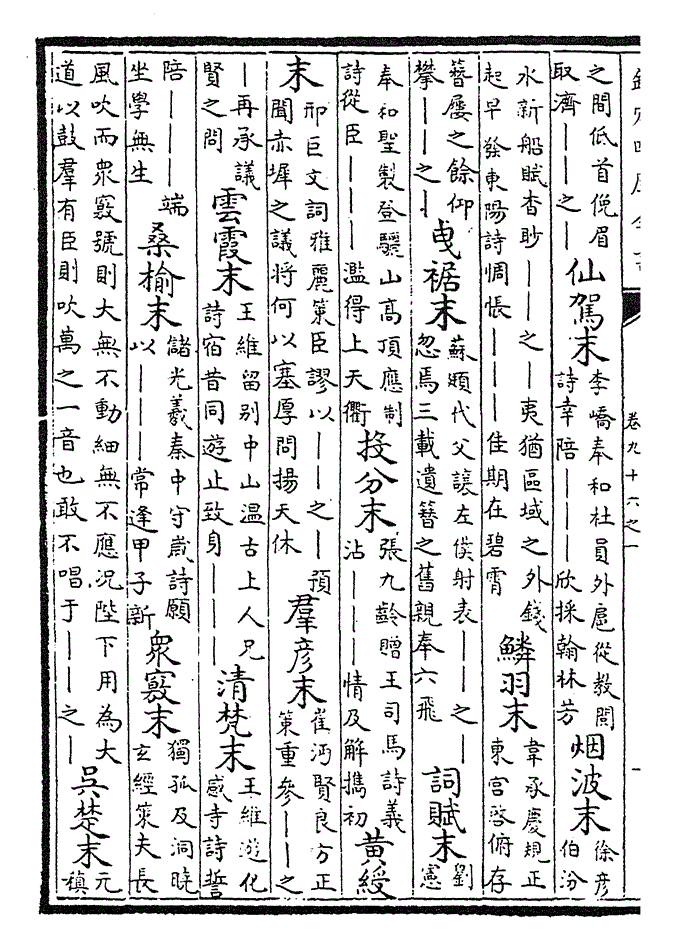 卷九十六之一
之間低首俛眉
取濟——之—
仙駕末
李嶠奉和杜員外扈從教閱
詩幸陪———欣採翰林芳
烟波末
徐彦
伯汾
水新船賦杳眇——之—夷猶區域之外錢
起早發東陽詩惆悵———佳期在碧霄
鱗羽末
韋承慶規正
東宫啓俯存
簪屨之餘仰
攀——之—
曵裾末
蘇頲代父讓左僕射表——之—
忽焉三載遺簪之舊親奉六飛
詞賦末
劉
憲
奉和聖製登驪山高頂應制
詩從臣———濫得上天衢
投分末
張九齡贈王司馬詩義
沾———情及解携初
黄綬
末
邢巨文詞雅麗策臣謬以——之—預
聞赤墀之議將何以塞厚問揚天休
羣彦末
崔沔賢良方正
策重參——之
—再承議
賢之問
雲霞末
王維留别中山温古上人兄
詩宿昔同遊止致身———
清梵末
王維遊化
感寺詩誓
陪———端
坐學無生
桑榆末
儲光羲秦中守歲詩願
以———常逢甲子新
衆竅末
獨孤及洞曉
玄經策夫長
風吹而衆竅號則大無不動細無不應况陛下用為大
道以鼓羣有臣則吹萬之一音也敢不唱于——之—
吳楚末
元
稹